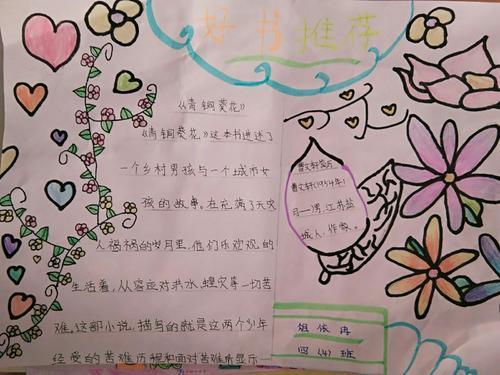 好书推荐
《青铜葵花》
《青铜葵花》这本书讲述了
一个乡村男孩与一个城市女
孩的故事。在充满了天灾
人祸祸的岁月里,他们乐观观的
生活着,从容应对洪水、蝗灾等一切苦
难。这部小说,描写的就是这两个少年
经受的苦难历程和面对苦难所显示一
曹文轩简介
曹文轩(1954年1
月—),男,江苏盐
城人,作家。
俎依冉
四(4)班